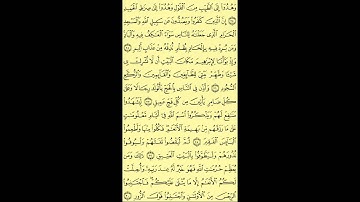 وَهُدُوٓا۟ إِلَى ٱلطَّيِّبِ مِنَ ٱلْقَوْلِ وَهُدُوٓا۟ إِلَىٰ صِرَٰطِ ٱلْحَمِيدِ
۝ إِنَّ ٱلَّذِينَ كَفَرُوا۟ وَيَصُدُّونَ عَن سَبِيلِ ٱللَّهِ وَٱلْمَسْجِدِ
ٱلْحَرَامِ ٱلَّذِى جَعَلْنَٰهُ لِلنَّاسِ سَوَآءً ٱلْعَٰكِفُ فِيهِ وَٱلْبَادِ
وَمَن يُرِدْ فِيهِ بِإِلْحَادٍۭ بِظُلْمٍ نُّذِقْهُ مِنْ عَذَابٍ أَلِيمٍ ۝
وَإِذْ بَوَّأْنَا لِإِبْرَٰهِيمَ مَكَانَ ٱلْبَيْتِ أَن لَّا تُشْرِكْ بِى
شَيْـًٔا وَطَهِّرْ بَيْتِىَ لِلطَّآئِفِينَ وَٱلْقَآئِمِينَ وَٱلرُّكَّعِ
ٱلسُّجُودِ ۝ وَأَذِّن فِى ٱلنَّاسِ بِٱلْحَجِّ يَأْتُوكَ رِجَالًا وَعَلَىٰ
كُلِّ ضَامِرٍ يَأْتِينَ مِن كُلِّ فَجٍّ عَمِيقٍ ۝ لِّيَشْهَدُوا۟
مَنَٰفِعَ لَهُمْ وَيَذْكُرُوا۟ ٱسْمَ ٱللَّهِ فِىٓ أَيَّامٍ مَّعْلُومَٰتٍ
عَلَىٰ مَا رَزَقَهُم مِّنۢ بَهِيمَةِ ٱلْأَنْعَٰمِ فَكُلُوا۟ مِنْهَا وَأَطْعِمُوا۟
ٱلْبَآئِسَ ٱلْفَقِيرَ ۝ ثُمَّ لْيَقْضُوا۟ تَفَثَهُمْ وَلْيُوفُوا۟
نُذُورَهُمْ وَلْيَطَّوَّفُوا۟ بِٱلْبَيْتِ ٱلْعَتِيقِ ۝ ذَٰلِكَ وَمَن
يُعَظِّمْ حُرُمَٰتِ ٱللَّهِ فَهُوَ خَيْرٌ لَّهُۥ عِندَ رَبِّهِۦ وَأُحِلَّتْ
لَكُمُ ٱلْأَنْعَٰمُ إِلَّا مَا يُتْلَىٰ عَلَيْكُمْ فَٱجْتَنِبُوا۟
ٱلرِّجْسَ مِنَ ٱلْأَوْثَٰنِ وَٱجْتَنِبُوا۟ قَوْلَ ٱلزُّورِ ۝